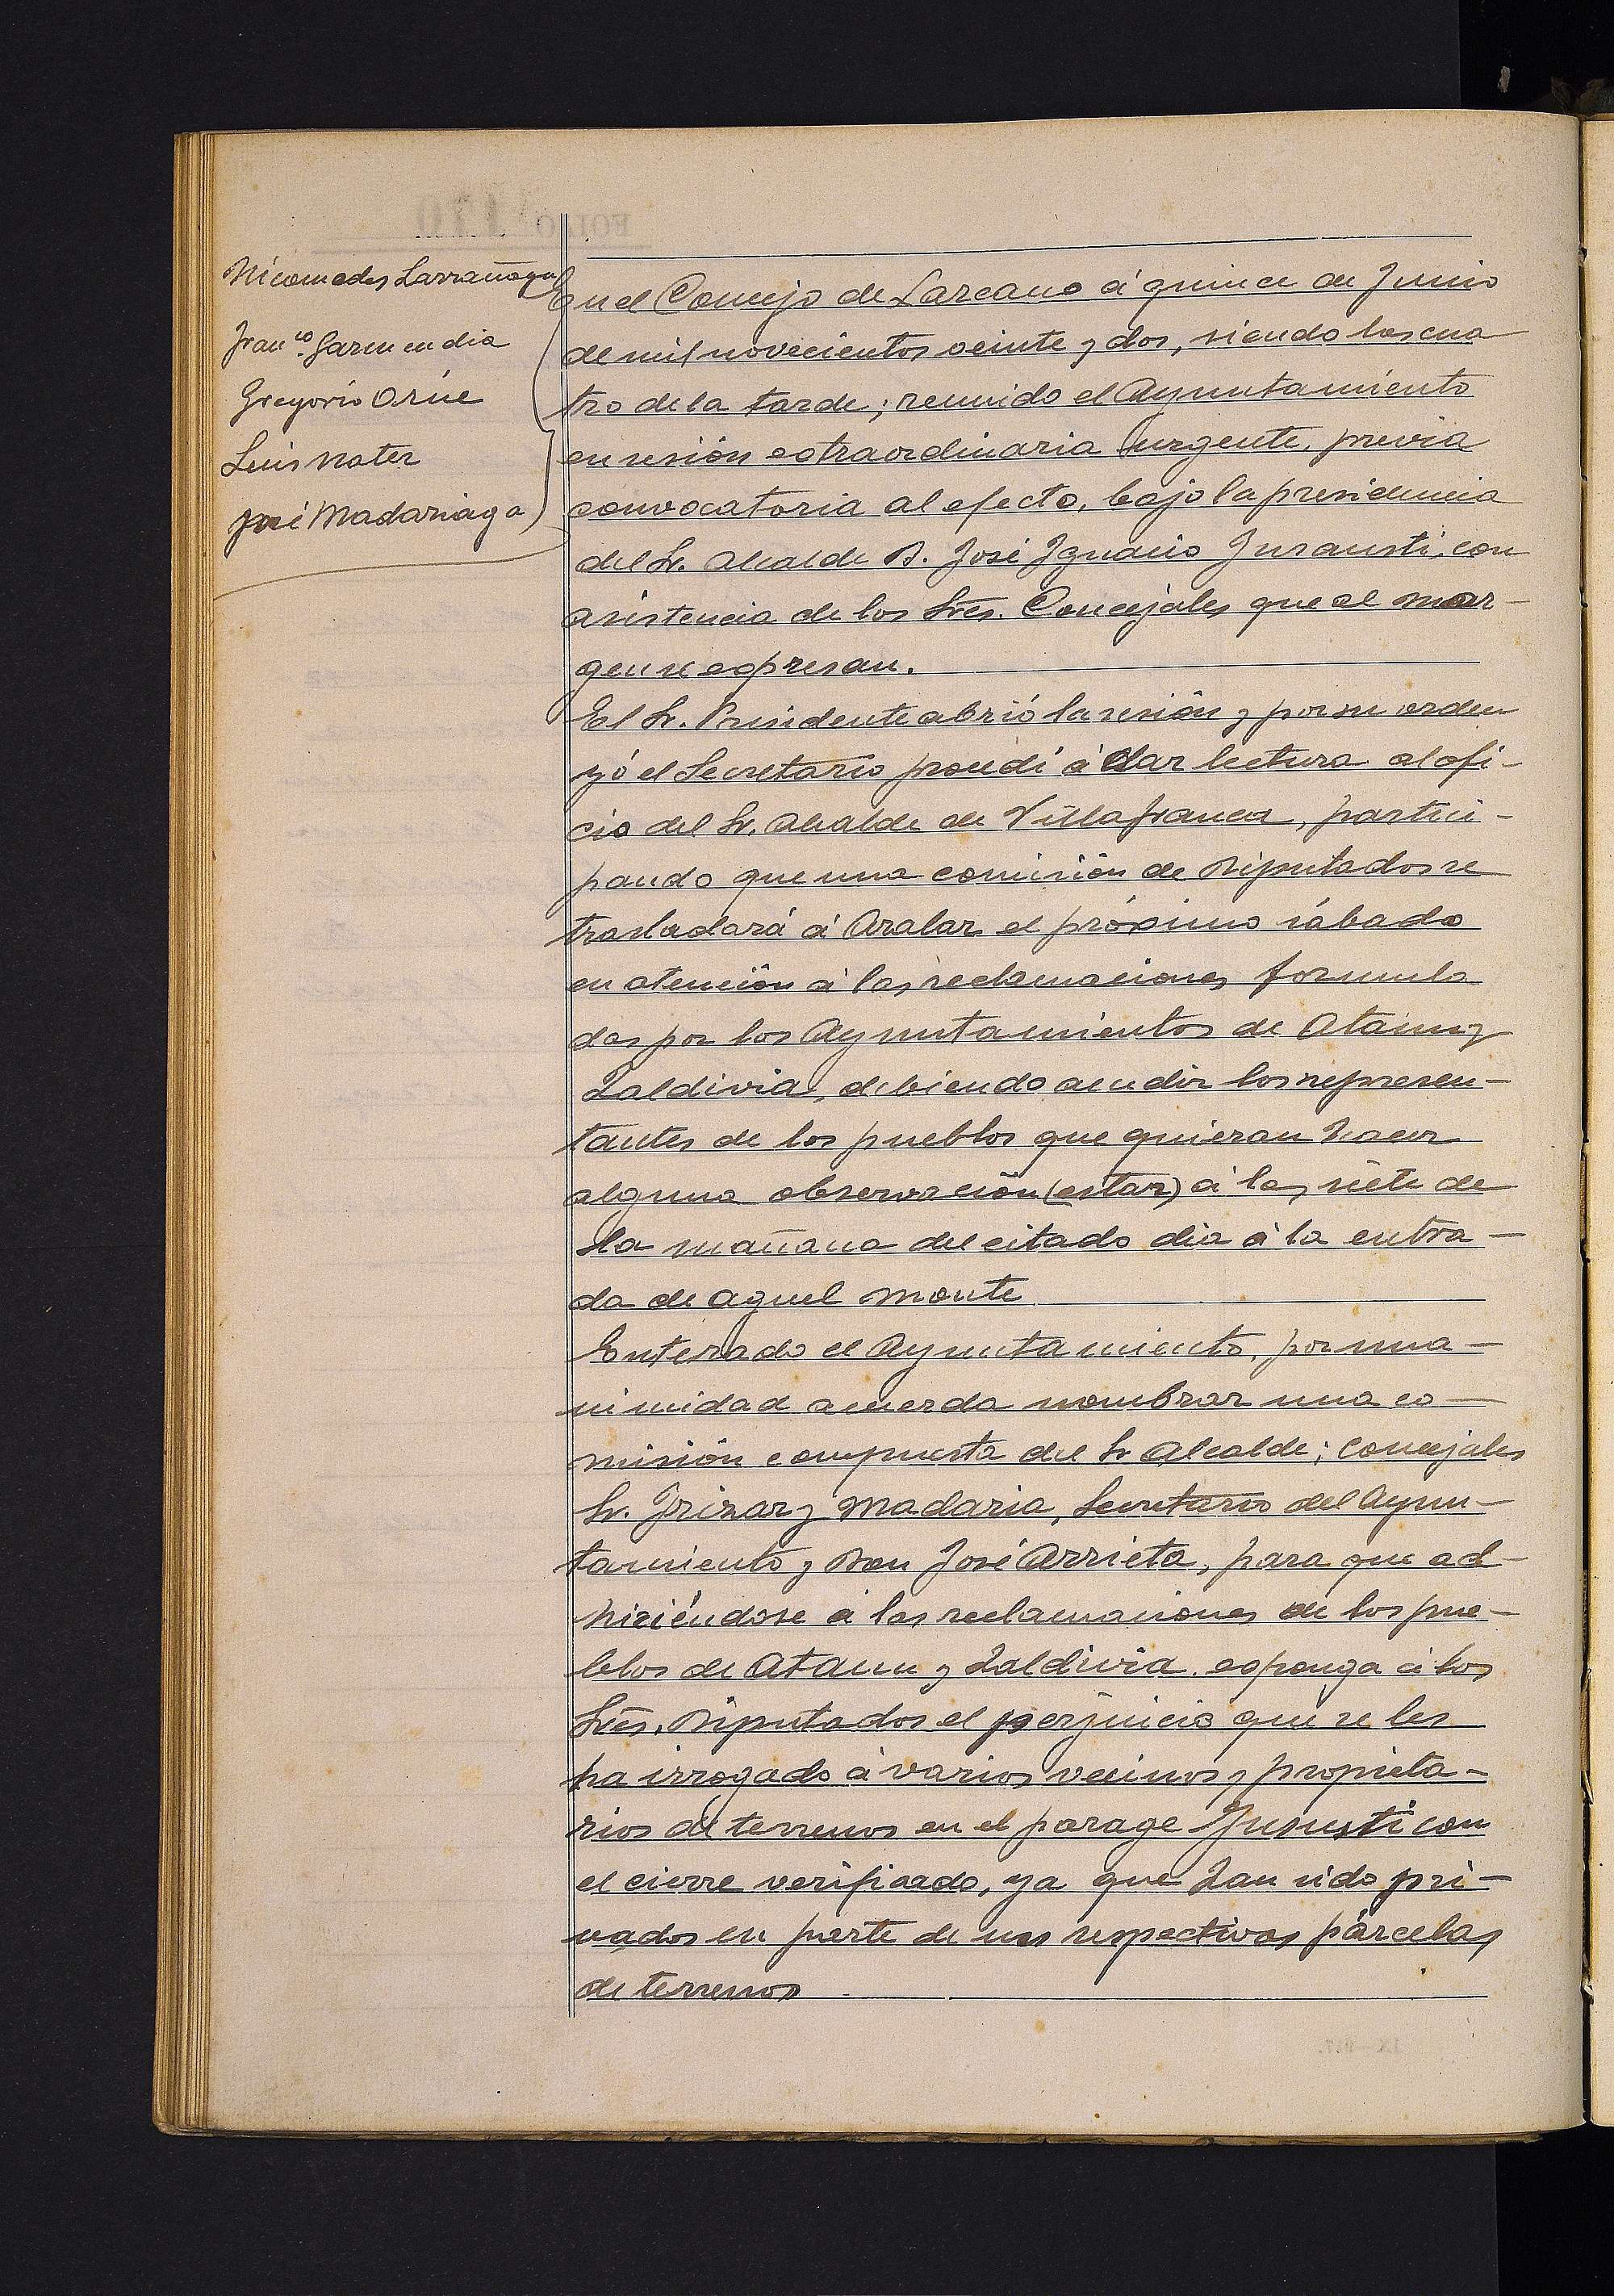 Nicomedes Larrañaga
Franco. Garmendia
Gregorio Orúe
Luis Mater
José Madariaga
En el Concejo de Lazcano á quince de Junio
de mil novecientos veinte y dos, siendo las cua
tro de la tarde; reunido el Ayuntamiento
en sesión estraordinaria urgente, previa
convocatoria al efecto, bajo la presidencia
del Sr. Alcalde D. José Ignacio Insausti, con
asistencia de los Sres. Concejales que al mar-
gen se espresan.
El Sr. Presidente abrió la sesión y por su orden
yó el Secretario procedí á dar lectura al ofi-
cio del Sr. Alcalde de Villafranca, partici-
pando que una comisión de Diputados se
trasladará á Aralar el próximo sábado
en atención á las reclamaciones formula
das por los Ayuntamientos de Ataun y
Zaldivia, debiendo acudir los represen-
tantes de los pueblos que quieran hacer
alguna observación (estar) á las siete de
la mañana del citado dia á la entra-
da de aquel monte
Enterado el Ayuntamiento, por una-
nimidad acuerda nombrar una co-
misión compuesta del Sr Alcalde; Concejales
Sr. Irizar y Madaria, Secretario del Ayun-
tamiento y Don José Arrieta, para que ad-
hiriéndose á las reclamaciones de los pue-
blos de Ataun y Zaldivia esponga á los
Sres. Diputados el perjuicio que se les
ha irrogado á varios vecinos y propieta-
rios de terrenos en el parage con
el cierre verificado, ya que han sido pri-
vados en parte de sus respectivas parcelas
de terrenos